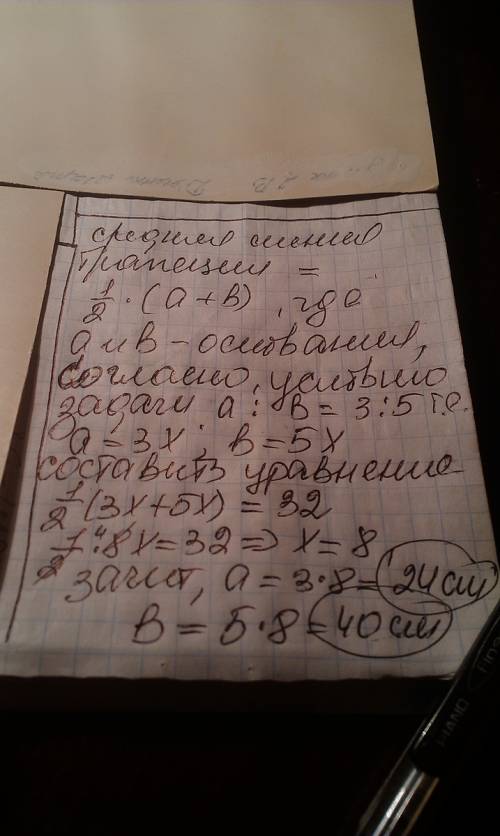 средняя линия
трапеции =
1/2 · (a + b), где
a и b – основания,
согласно условию
задачи a : b = 3 : 5 т.е.
a = 3x ; b = 5x
составить уравнение
1/2 (3x + 5x) = 32
1/2 · 8x = 32 => x = 8
значит, a = 3·8 = 24 см
b = 5·8 = 40 см